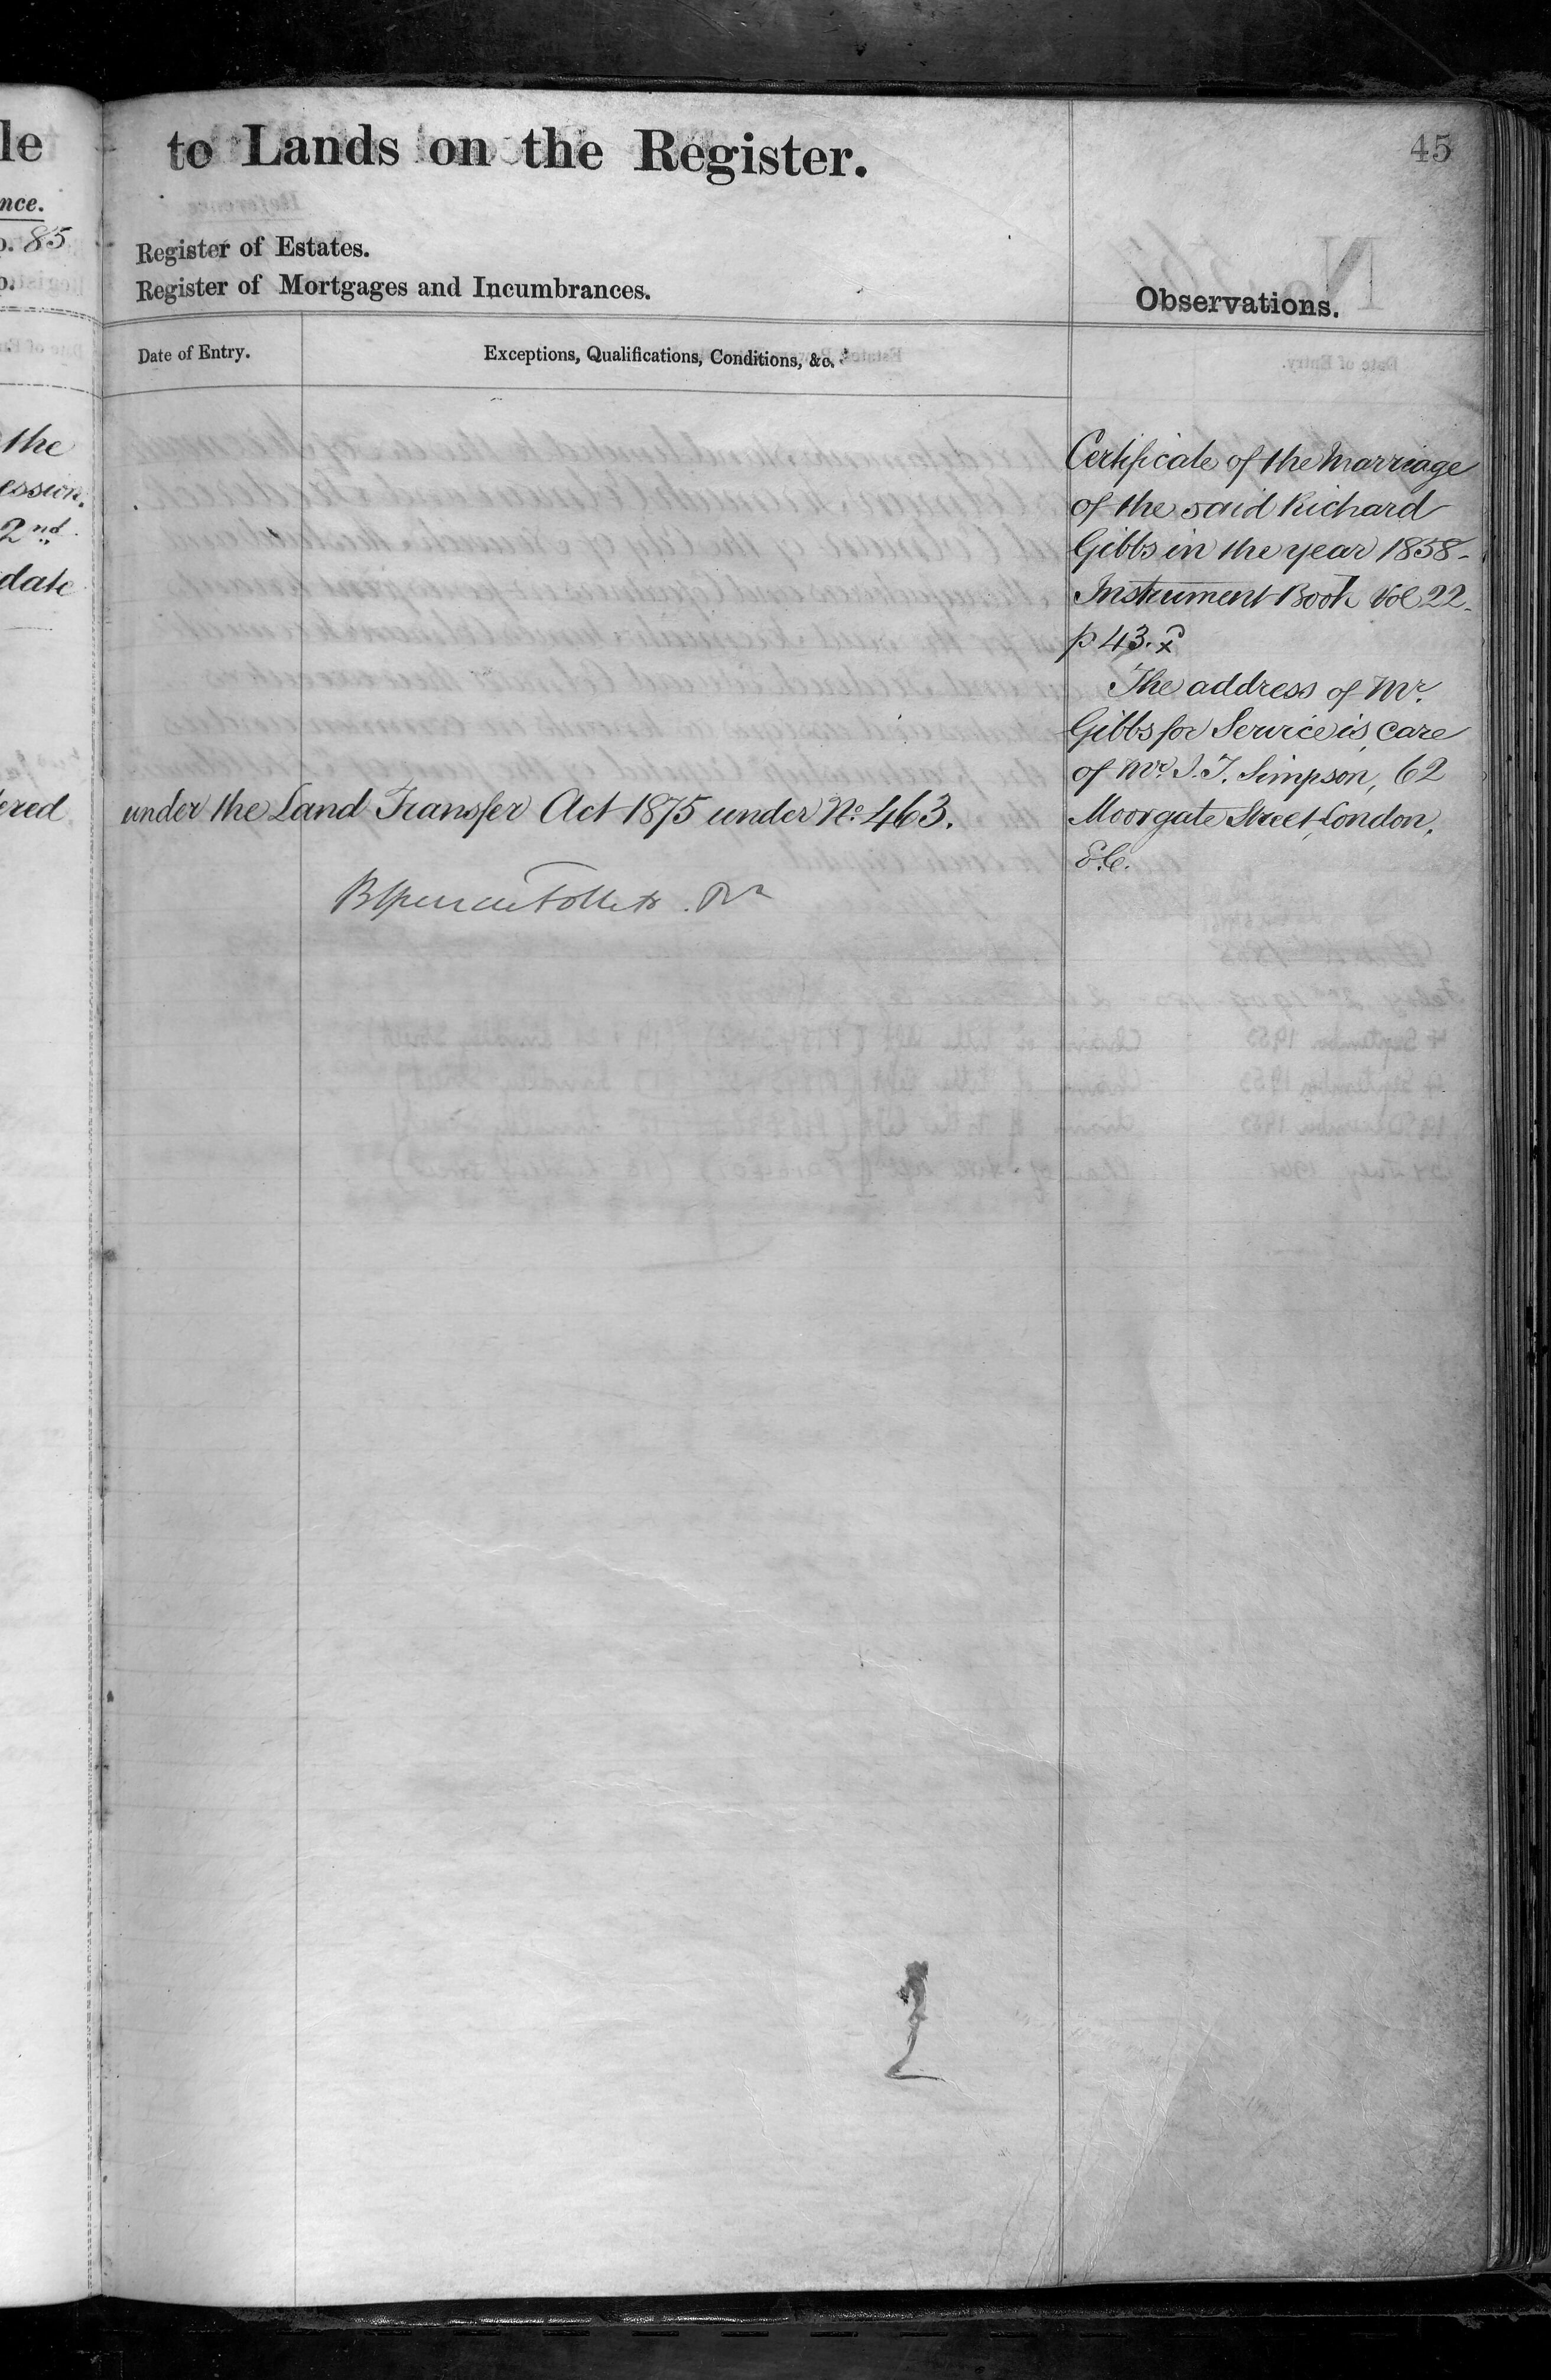 le
nce.
o. 85
o.
the
ession.
2nd
date
ered
to Lands on the Register.
45
Register of Estates.
Register of Mortgages and Incumbrances.
Observations.
Date of Entry.
Exceptions, Qualifications, Conditions, &c.
Certificate of the Marriage
of the said Richard
Gibbs in the year 1858-
Instrument Book Vol 22.
p 43.
The address of Mr.
Gibbs for Service is care
of Mr. J. T. Simpson, 62
Moorgate Street, London,
E.C.
under the Land Transfer Act 1875 under No. 463.